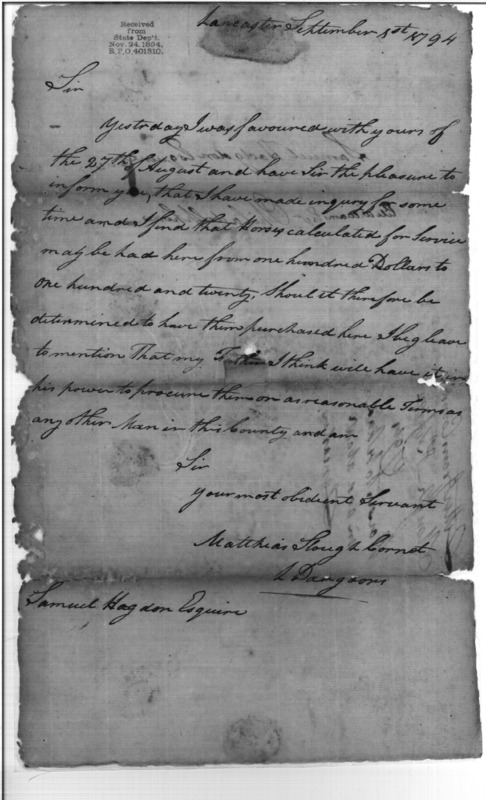 Received
from
State Dep't.
Nov. 24, 1894,
R. P. O. 401310.
Lancaster September 1st 1794
Sir
Yestrday I was favoured with yours of
the 27th of August and have Sir the pleasure to
inform you, that I have made inquiry for some
time and I find that Horses calculated for Service
may be had here from one hundred Dollars to
one hundred and twenty, Shoul it therefore be
determined to have them purchased here I beg leave
to mention That my Father I think will have it in
his power to procure them on as reasonable Terms as
any other Man in this County and am
Sir
your most obedient Servant
Matthias Slough Cornet
Dragoons
Samuel Hogdon Esquire